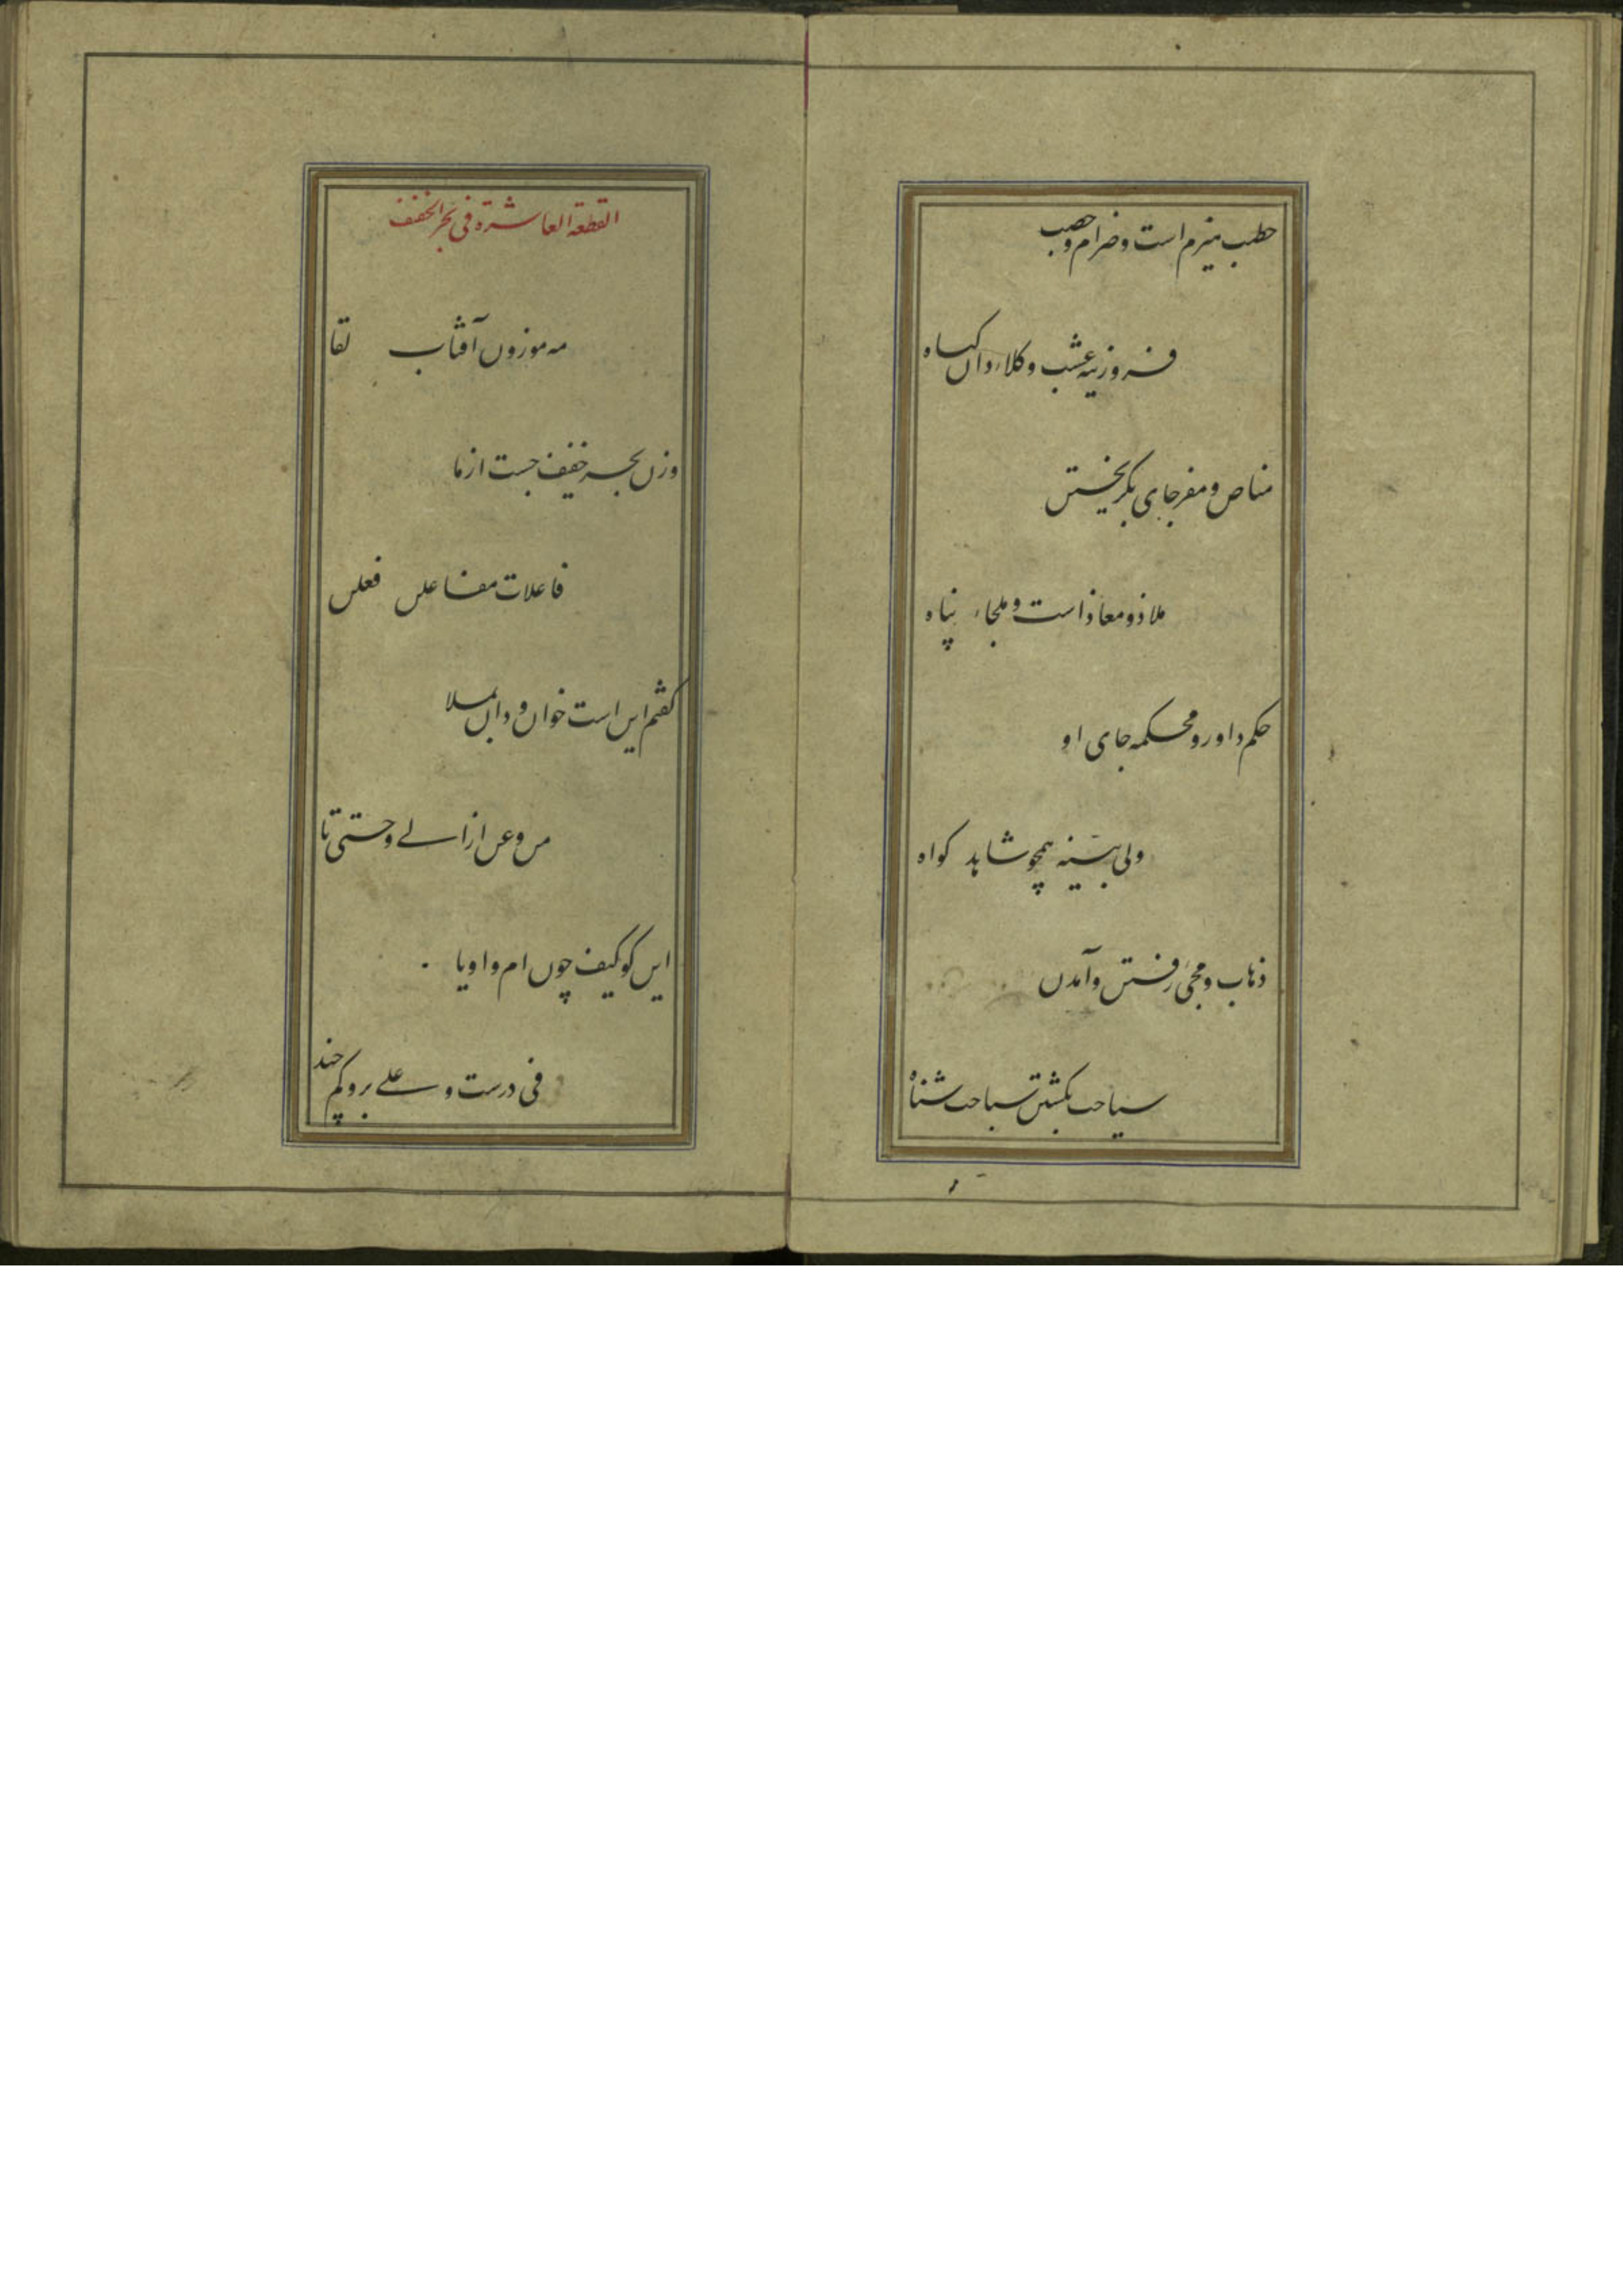 حطب هیزم است و ضرام و حصب
فروزینه عشب و کلاء دان کیاه
مناص و مفر جای بکریختن
ملاذ و معاذ است و ملجاء پناه
حکم داور و محکمه جای او
ولی بینه همچو شاهد کواه
ذهاب و مجئ رفتن و آمدن
سیاحت بکشتن سباحت شناه
القطعة العاشرة فی بحر الخفیف
مه موزون آفتاب لقا
وزن بحر خفیف جست از ما
فاعلات مفاعلن فعلن
کفتم این است خوان و دان بملا
من و عن از الی و حتی تا
این کو کیف چون ام و او یا
فی درست و علی بر و کم چند